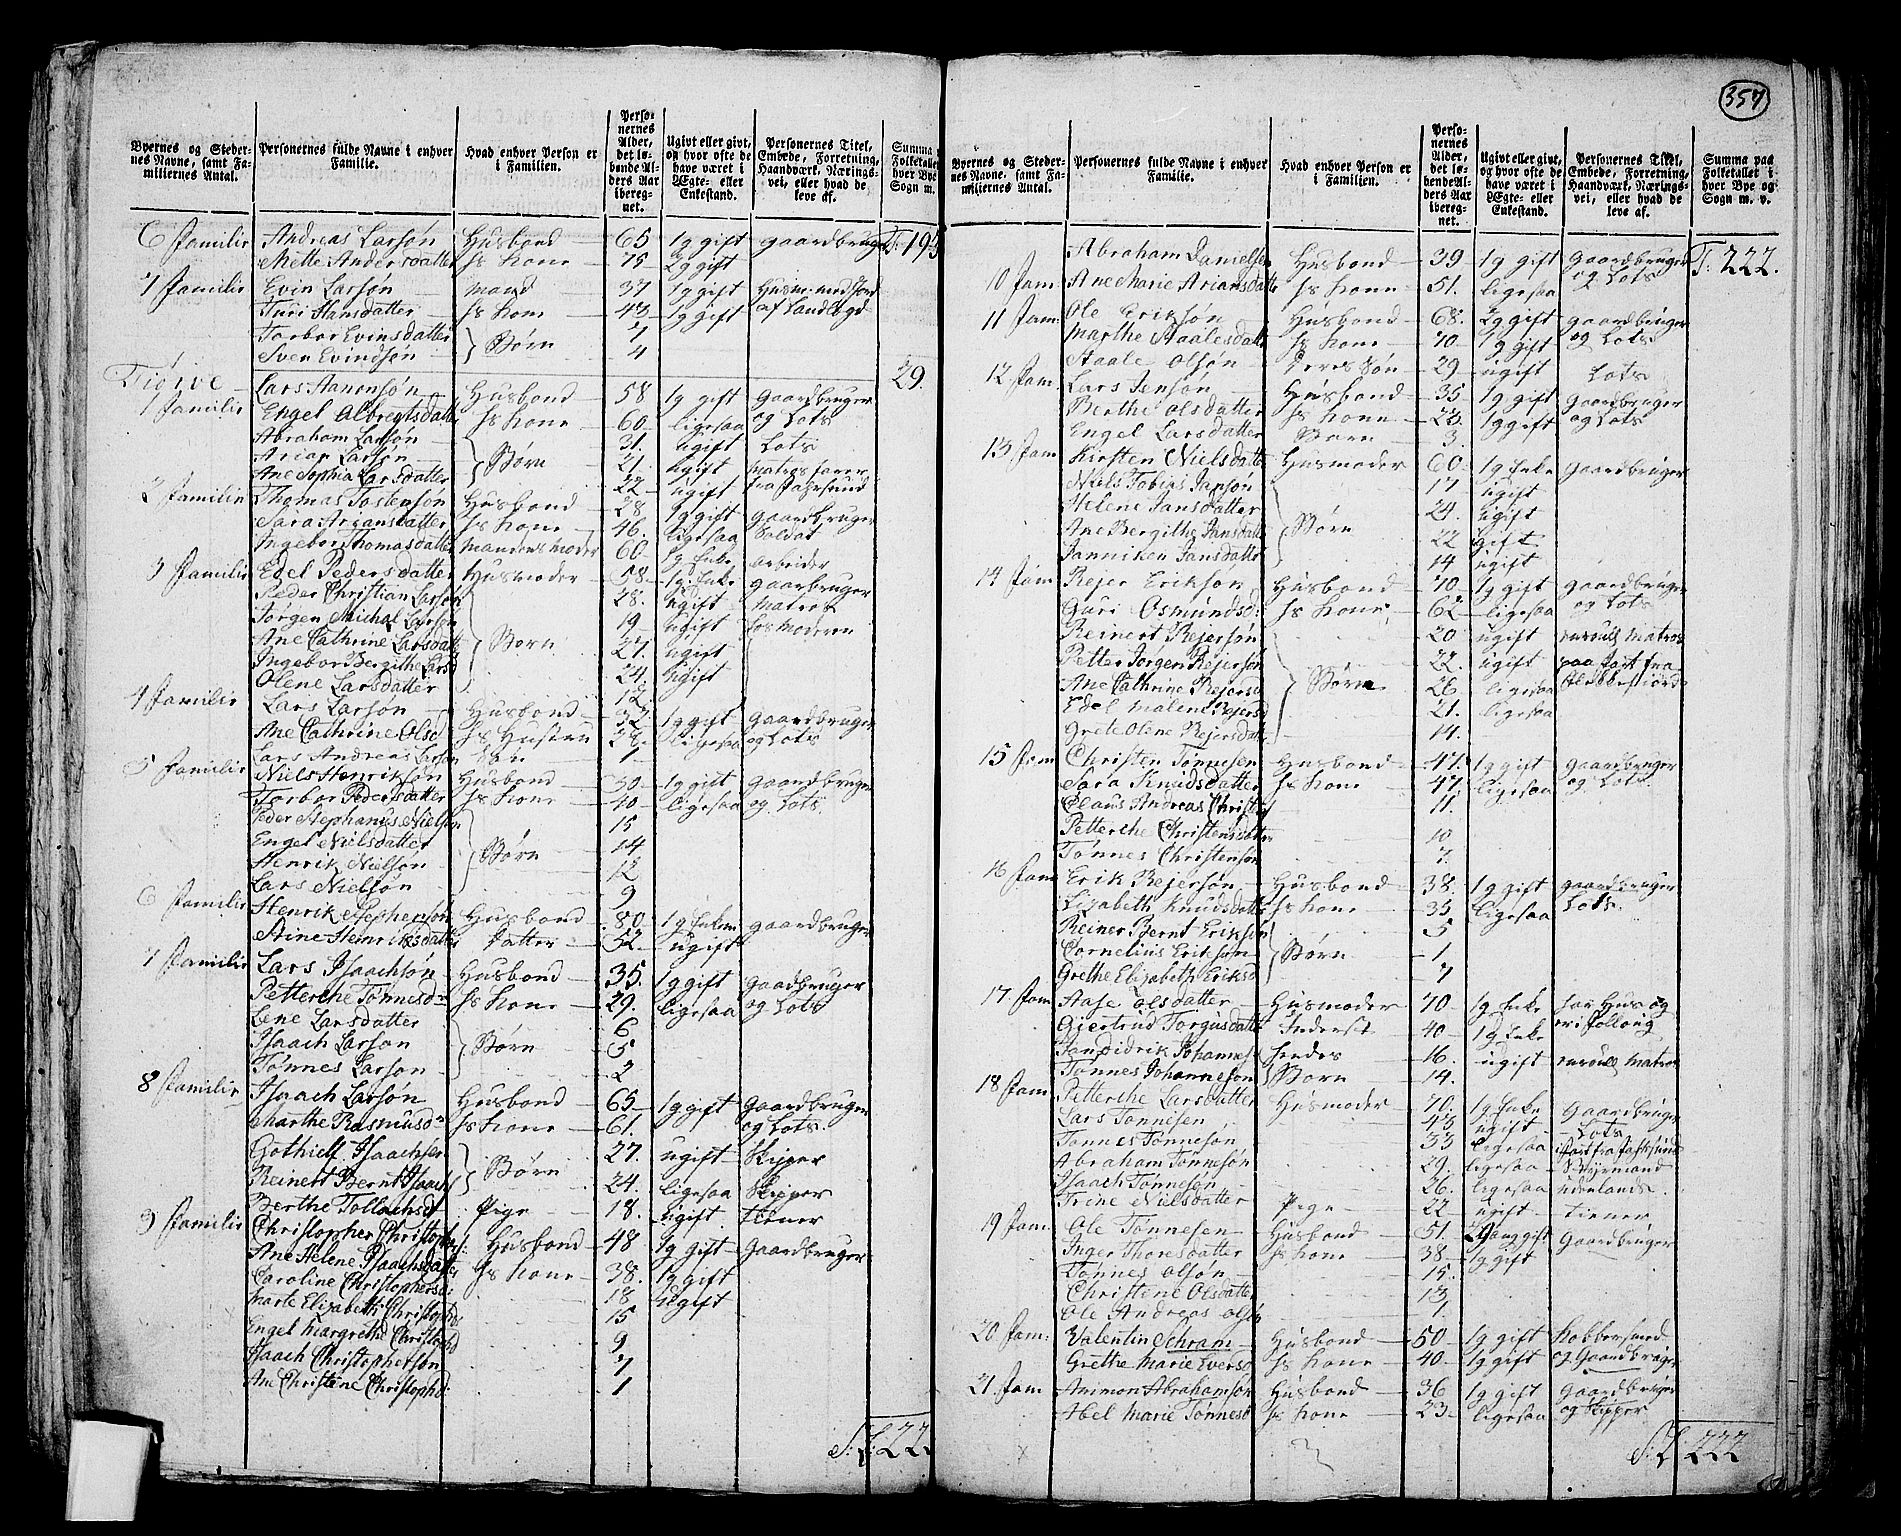 357
Byernes og Steder-nes Navne, samt Fa-miliernes Antal. | Personernes fulde Navne i enhver Familie. | Hvad enhver Person er i Familien. | Perso-nernes Alder, det lø-bende Al-ders Aar iberegnet. | Ugivt eller givt, og hvor ofte de have været i Ægte- eller Enkestand. | Personernes Titel, Embede, Forretning, Haandværk, Nærings-vei, eller hvad de leve af. | Summa Folketallet hver Bye Sogn m.
6 Familie Andreas Larsøn Husbond 65 1g gift gaardbruger T: 195
Mette Andersdatter hs Kone 75 2g gift
7 Familie Evin Larsøn mand 37 1g gift Husm: med Jord
Turi Hansdatter hs Kone 43 1g gift af Landlægd
Torbor Evinsdatter 7
Sven Evindsøn } Børn 4
Tiørve Lars Aanonsøn Husbond 58 1g gift Gaardbruger 29.
1 Familie Engel Albregtsdatter hs Kone 60 ligesaa og Lots
Abraham Larsøn 31. ugift Lots
Arian Larsøn } Børn 21. ugift matros farer
Ane Sophia Larsdatter 22 ugift fra Farsund
2 Familie Thomas Tostensøn Husbond 28 1g gift gaardbruger
Sara Ariansdatter hs Kone 46. ligesaa Soldat
Ingebor Thomasdatter mandens moder 60 1g Enke arbeider
3 Familie Edel Pedersdatter Husmoder 58 1g: Enke gaarbruger
Peder Christian Larsøn 28. ugift Matros
Jørgen Michal Larsøn 19 ugift hos moderen
Ane Cathrine Larsdatt } Børn 27. ugift
Ingebor Bergithe Larsd 24. ugift
Olene Larsdatter 12
4 Familie Lars Larsøn Husbond 32 1g gift Gaardbruger
Ane Cathrine Olsd hs Husten 28. ligesaa og Lots
Lars Andreas Larsøn Søn 1
5 Familie Niels Henriksøn Husbond 50 1g gift gaardbruger
Torbor Pedersdatter hs Kone 40 ligesaa og Lots.
Peder Stephanus Nielsøn 15
Engel Nielsdatter 14
Henrik Nielsøn } Børn 12
Lars Nielsøn 9
6 Familie Henrik Stephensøn Husbond 80 1g Enkem gaardbruger
Stine Henriksdatter Datter 32 ugift
7 Familie Lars Isaachsøn Husbond 35. 1g gift gaardbruger
Petterche Tønnesd hs Kone 29. ligesaa og Lots
Lene Larsdatter 6
Isaach Larsøn } Børn 5
Tønnes Larsøn 2
8 Familie Isaach Larsøn Husbond 65 1g gift Gaardbruger
Marthe Rasmusd hs Kone 61. og Lots.
Gothiels Isaachsen 27. ugift Skipper
Reinert Bernt Isaach } Børn 24. ligesaa Skipper
Berthe Tollachsd Pige 18. ugift tiener
9 Familie Christopher Christoph: Husbond 48 1g gift Gaardbruger
Ane Helene Isaachsdatter hs Kone 38. 1g gift
Caroline Christophersd: 18 ugift
Marte Elizabeth Christoph: 15
Engel Margrethe Christoph 9
Isaach Christophersøn 7
Ane Christene Christoph: 1
S: L: 222
Byernes og Steder-nes Navne, samt Fa-miliernes Antal. | Personernes fulde Navne i enhver Familie. | Hvad enhver Person er i Familien. | Perso-nernes Alder, det lø-bende Al-ders Aar iberegnet. | Ugivt eller givt, og hvor ofte de have været i Ægte- eller Enkestand. | Personernes Titel, Embede, Forretning, Haandværk, Nærings-vei, eller hvad de leve af. | Summa paa Folketallet i hver Bye og Sogn m. v.
10 Fam Abraham Danielsen Husbond 39 1g gift Gaardbruger T: 222.
Ane Marie Ariansdatter hs Kone 51. ligesaa og Lots
11 Fam: Ole Eriksøn Husbond 68. 2g gift gaardbruger
Marthe Staalesdatt hs Kone 70 1g gift og Lots
Staale Olsøn deres Søn 29 ugift Lots
12 Fam Lars Jensøn Husbond 35 1g gift gaardbruger
Berthe Olsdatter hs Kone 23. 1g gift og Lots
Engel Larsdatter Børn 3
13 Fam Kirsten Nielsdatter Husmoder 60 1g Enke gaardbruger
Niels Tobias Jansøn 17 ugift
Helene Jansdatter 24. ugift
Ane Bergithe Jansdatt } Børn 22 ugift
Janniken Jansdatter 14 ugift
14 Fam: Rejer Eriksøn Husbond 70 1g gift gaardbruger
Guri Osmundsd: hs Kone 62 ligesaa og Lots
Reinert Rejersøn 20 ugift enroull matros
Petter Jørgen Rejersøn 22. ugift paa Fart fra
Ane Cathrine Rejersd } Børn 26 ligesaa Flekkefiord
Edel Malene Rejersd 21. ligesaa
Grete Olene Rejersdatt 14.
15 Fam Christen Tønnesen Husbond 47. 1g gift gaardbruger
Sara Knudsdatter hs Kone 47 ligesaa og Lots.
Claus Andreas Christe 11.
Petterche Christensdatter 10
Tønnes Christensøn 7.
16 Fam Erik Rejersøn Husbond 38. 1g gift gaardbruger
Lizabeth Knudsdatt hs Kone 35 ligesaa Lots.
Reiner Bernt Eriksøn 5
Cornelius Eriksøn } Børn 1
Grethe Elizabeth Eriksd 7
17 Fam Aase Olsdatter Husmoder 70 1g Enke har Hus og
Giertrud Torgusdatter Inderst 40 1g Enke
Jan Didrik Johannes hendes 16. ugift enroull matros
Tønnes Johannesøn } Børn 14.
18 Fam Petterche Larsdatter Husmoder 70. 1g Enke Gaardbruger
Lars Tønnesen 45 ugift Lots
Tønnes Tønnesøn 33 ligesaa
Abraham Tønnesøn 29. ligesaa Styrmand
Isaach Tønnesøn 26. ligesaa udenlands.
Trine Nielsdatter Pige 22 ugift tiener
19 Fam: Ole Tønnesen Husbond 51. 2gang gift Gaardbruger
Inger Thoresdatter hs Kone 38 1g gift
Tønnes Olsøn 15.
Christene Olsdatter 13
Ole Andreas Olsøn 1
20 Fam: Valentin Schram Husbond 50 1g gift
Grethe Marie Eversd hs Kone 40 1g gift og Gaardbruger
21 Fam Animon Abrahamsøn Husbond 36 1g gift gaardbruger
Abel Marie Tønnesd hs Kone 23 ligesaa og Skipper
S: L: 222